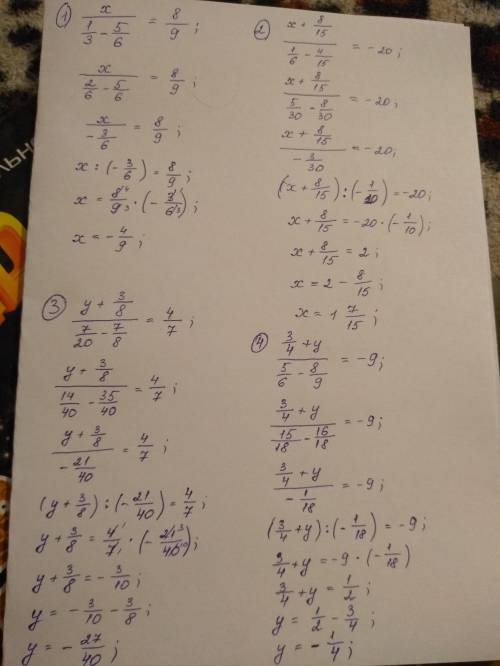 ① x / (1/3 - 5/6) = 8/9 ;
x / (2/6 - 5/6) = 8/9 ;
x / (- 3/6) = 8/9 ;
x : (- 3/6) = 8/9 ;
x = 8⁴/9₃ · (- 3¹/6₃) ;
x = - 4/9 ;
② (x + 8/15) / (1/6 - 4/15) = -20 ;
(x + 8/15) / (5/30 - 8/30) = -20 ;
(x + 8/15) / (- 3/30) = -20 ;
(x + 8/15) : (- 1/10) = -20 ;
x + 8/15 = -20 · (- 1/10) ;
x + 8/15 = 2 ;
x = 2 - 8/15 ;
x = 1 7/15 ;
③ (y + 3/8) / (7/20 - 7/8) = 4/7 ;
(y + 3/8) / (14/40 - 35/40) = 4/7 ;
(y + 3/8) / (- 21/40) = 4/7 ;
(y + 3/8) : (- 21/40) = 4/7 ;
y + 3/8 = 4¹/7₁ · (- 21³/40₁₀) ;
y + 3/8 = - 3/10 ;
y = - 3/10 - 3/8 ;
y = - 27/40 ;
④ (3/4 + y) / (5/6 - 8/9) = -9 ;
(3/4 + y) / (15/18 - 16/18) = -9 ;
(3/4 + y) / (- 1/18) = -9 ;
(3/4 + y) : (- 1/18) = -9 ;
3/4 + y = -9 · (- 1/18)
3/4 + y = 1/2 ;
y = 1/2 - 3/4 ;
y = - 1/4 ;